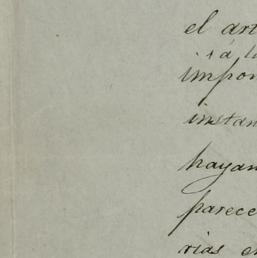 el art
á l
impor
instan
hayan
parece
rias e